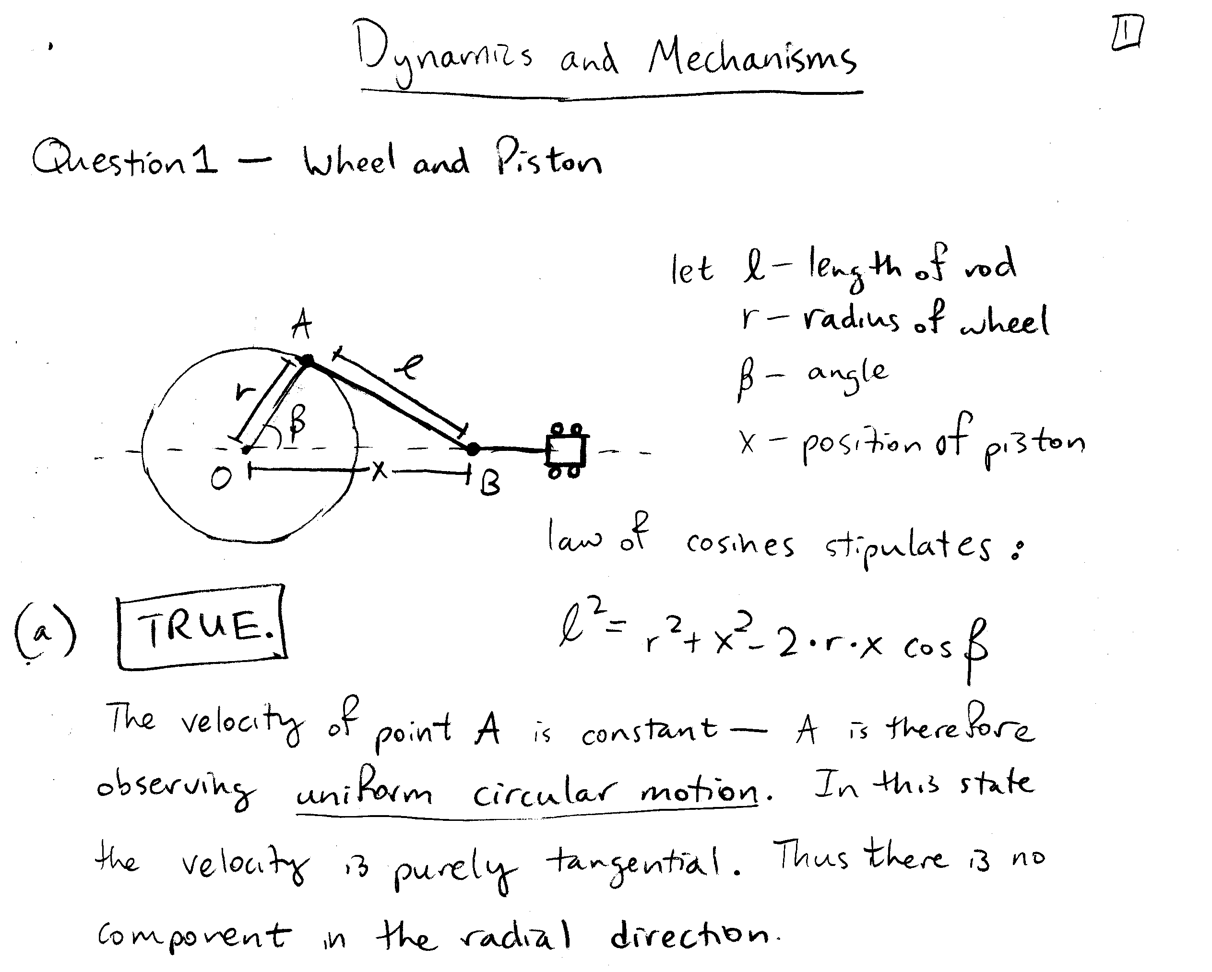 Dynamics and Mechanisms
1
Question 1 — Wheel and Piston
let l - length of rod
r - radius of wheel
β - angle
x - position of piston
A
r
l
β
O
x
B
law of cosines stipulates :
l² = r² + x² - 2·r·x cos β
(a) TRUE.
The velocity of point A is constant — A is therefore
observing uniform circular motion. In this state
the velocity is purely tangential. Thus there is no
component in the radial direction.